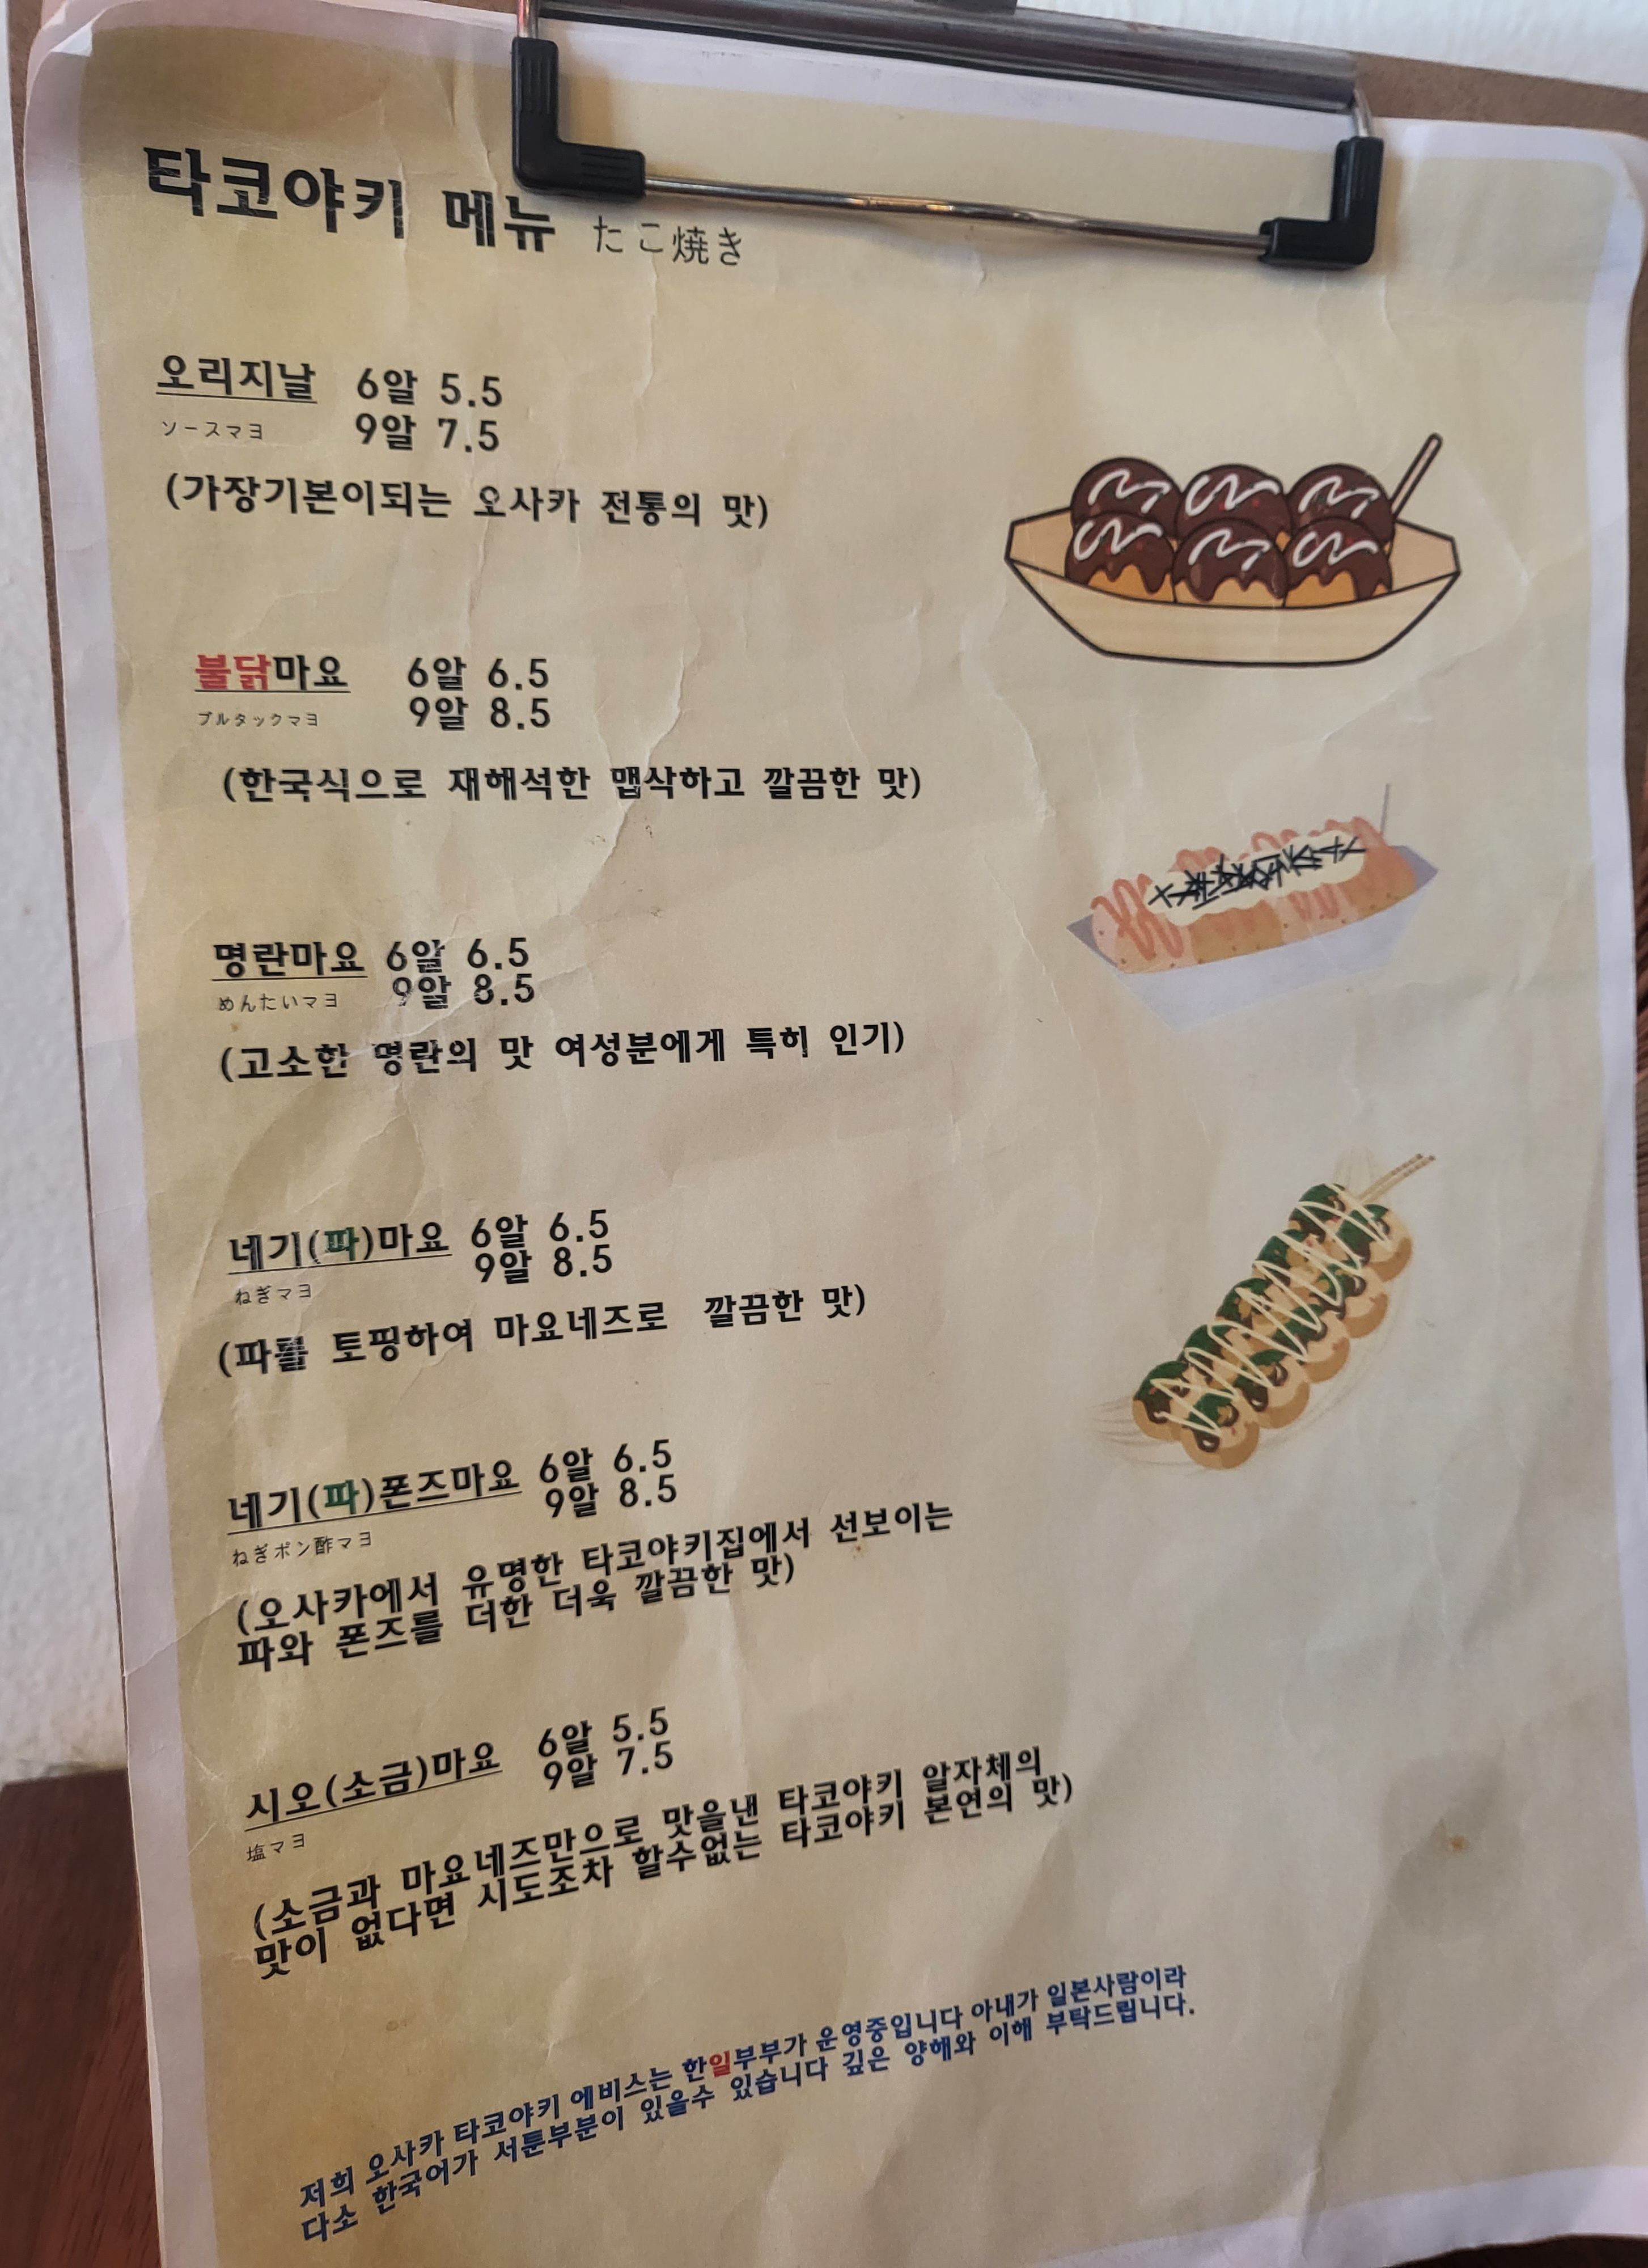 타코야키 메뉴 たこ焼き
오리지날 6알 5.5
ソースマヨ 9알 7.5
(가장기본이되는 오사카 전통의 맛)
불닭마요 6알 6.5
ブルタックマヨ 9알 8.5
(한국식으로 재해석한 맵삭하고 깔끔한 맛)
명란마요 6알 6.5
めんたいマヨ 9알 8.5
(고소한 명란의 맛 여성분에게 특히 인기)
네기(파)마요 6알 6.5
ねぎマヨ 9알 8.5
(파를 토핑하여 마요네즈로 깔끔한 맛)
네기(파)폰즈마요 6알 6.5
ねぎポン酢マヨ 9알 8.5
(오사카에서 유명한 타코야키집에서 선보이는
파와 폰즈를 더한 더욱 깔끔한 맛)
시오(소금)마요 6알 5.5
塩マヨ 9알 7.5
(소금과 마요네즈만으로 맛을낸 타코야키 알자체의
맛이 없다면 시도조차 할수없는 타코야키 본연의 맛)
저희 오사카 타코야키 에비스는 한일부부가 운영중입니다 아내가 일본사람이라
다소 한국어가 서툰부분이 있을수 있습니다 깊은 양해와 이해 부탁드립니다.